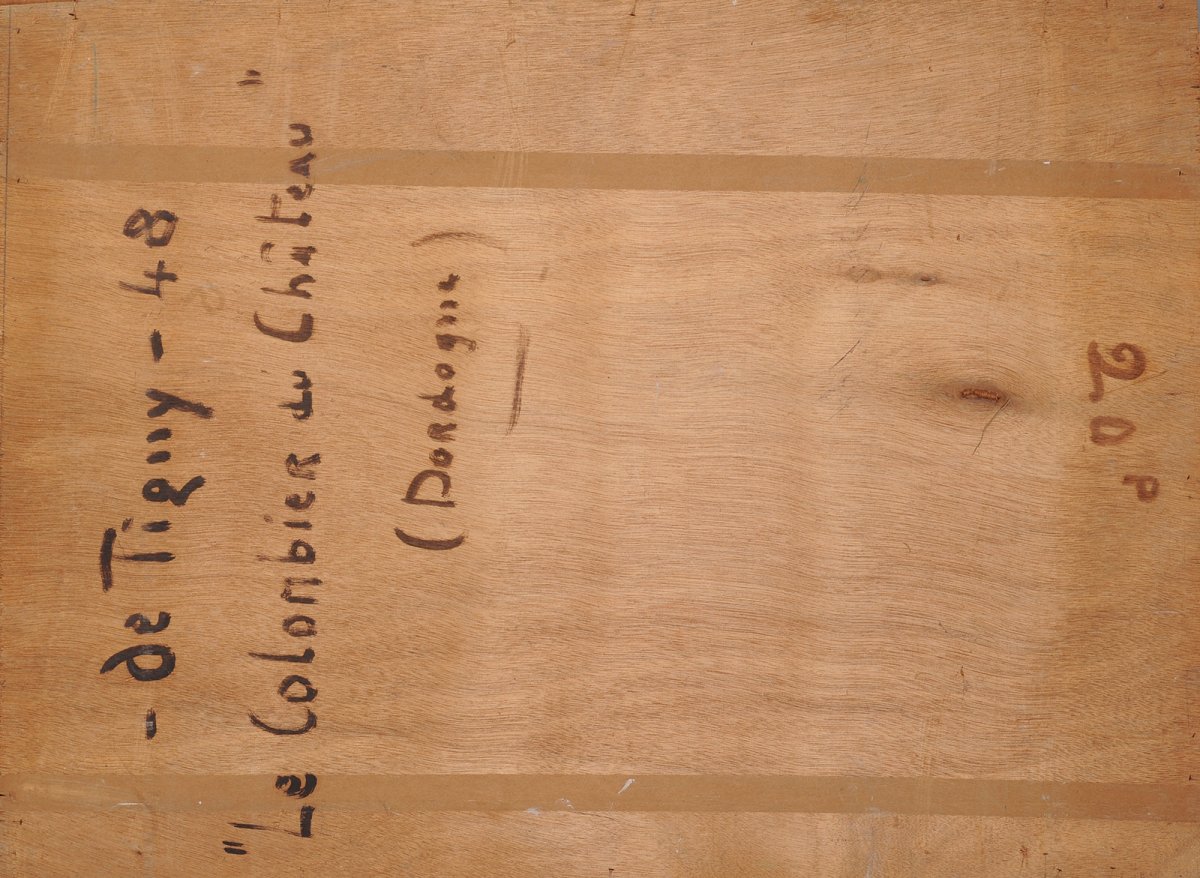 - de Tigny - 48
"Le Colombier du Château"
(Dordogne)
20 P